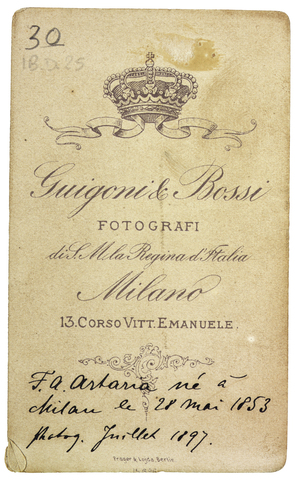 30
18.D.25
Guigoni & Bossi
FOTOGRAFI
di S. M. la Regina d'Italia
Milano
13. CORSO VITT. EMANUELE.
F. A. Artaria né à
Milan le 28 Mai 1853
photog. Juillet 1897.
Berlin